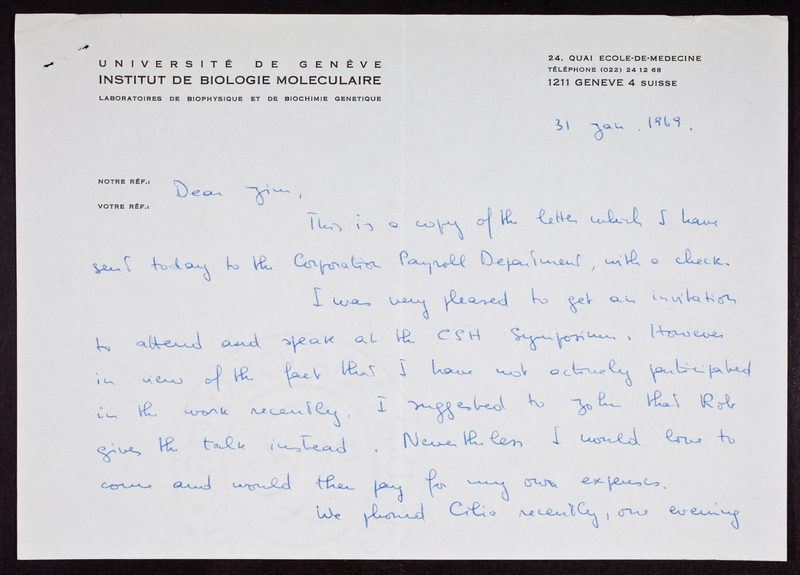 UNIVERSITÉ DE GENÈVE
INSTITUT DE BIOLOGIE MOLECULAIRE
LABORATOIRES DE BIOPHYSIQUE ET DE BIOCHIMIE GENETIQUE
24, QUAI ECOLE-DE-MEDECINE
TÉLÉPHONE (022) 24 12 68
1211 GENEVE 4 SUISSE
31 Jan. 1969.
NOTRE RÉF.:
VOTRE RÉF.:
Dear Jim,
This is a copy of the letter which I have
sent today to the Corporation Payroll Department, with a check.
I was very pleased to get an invitation
to attend and speak at the CSH Symposium. However
in view of the fact that I have not actively participated
in the work recently, I suggested to John that Rob
gives the talk instead. Nevertheless I would love to
come and would then pay for my own expenses.
We phoned Celia recently, one evening